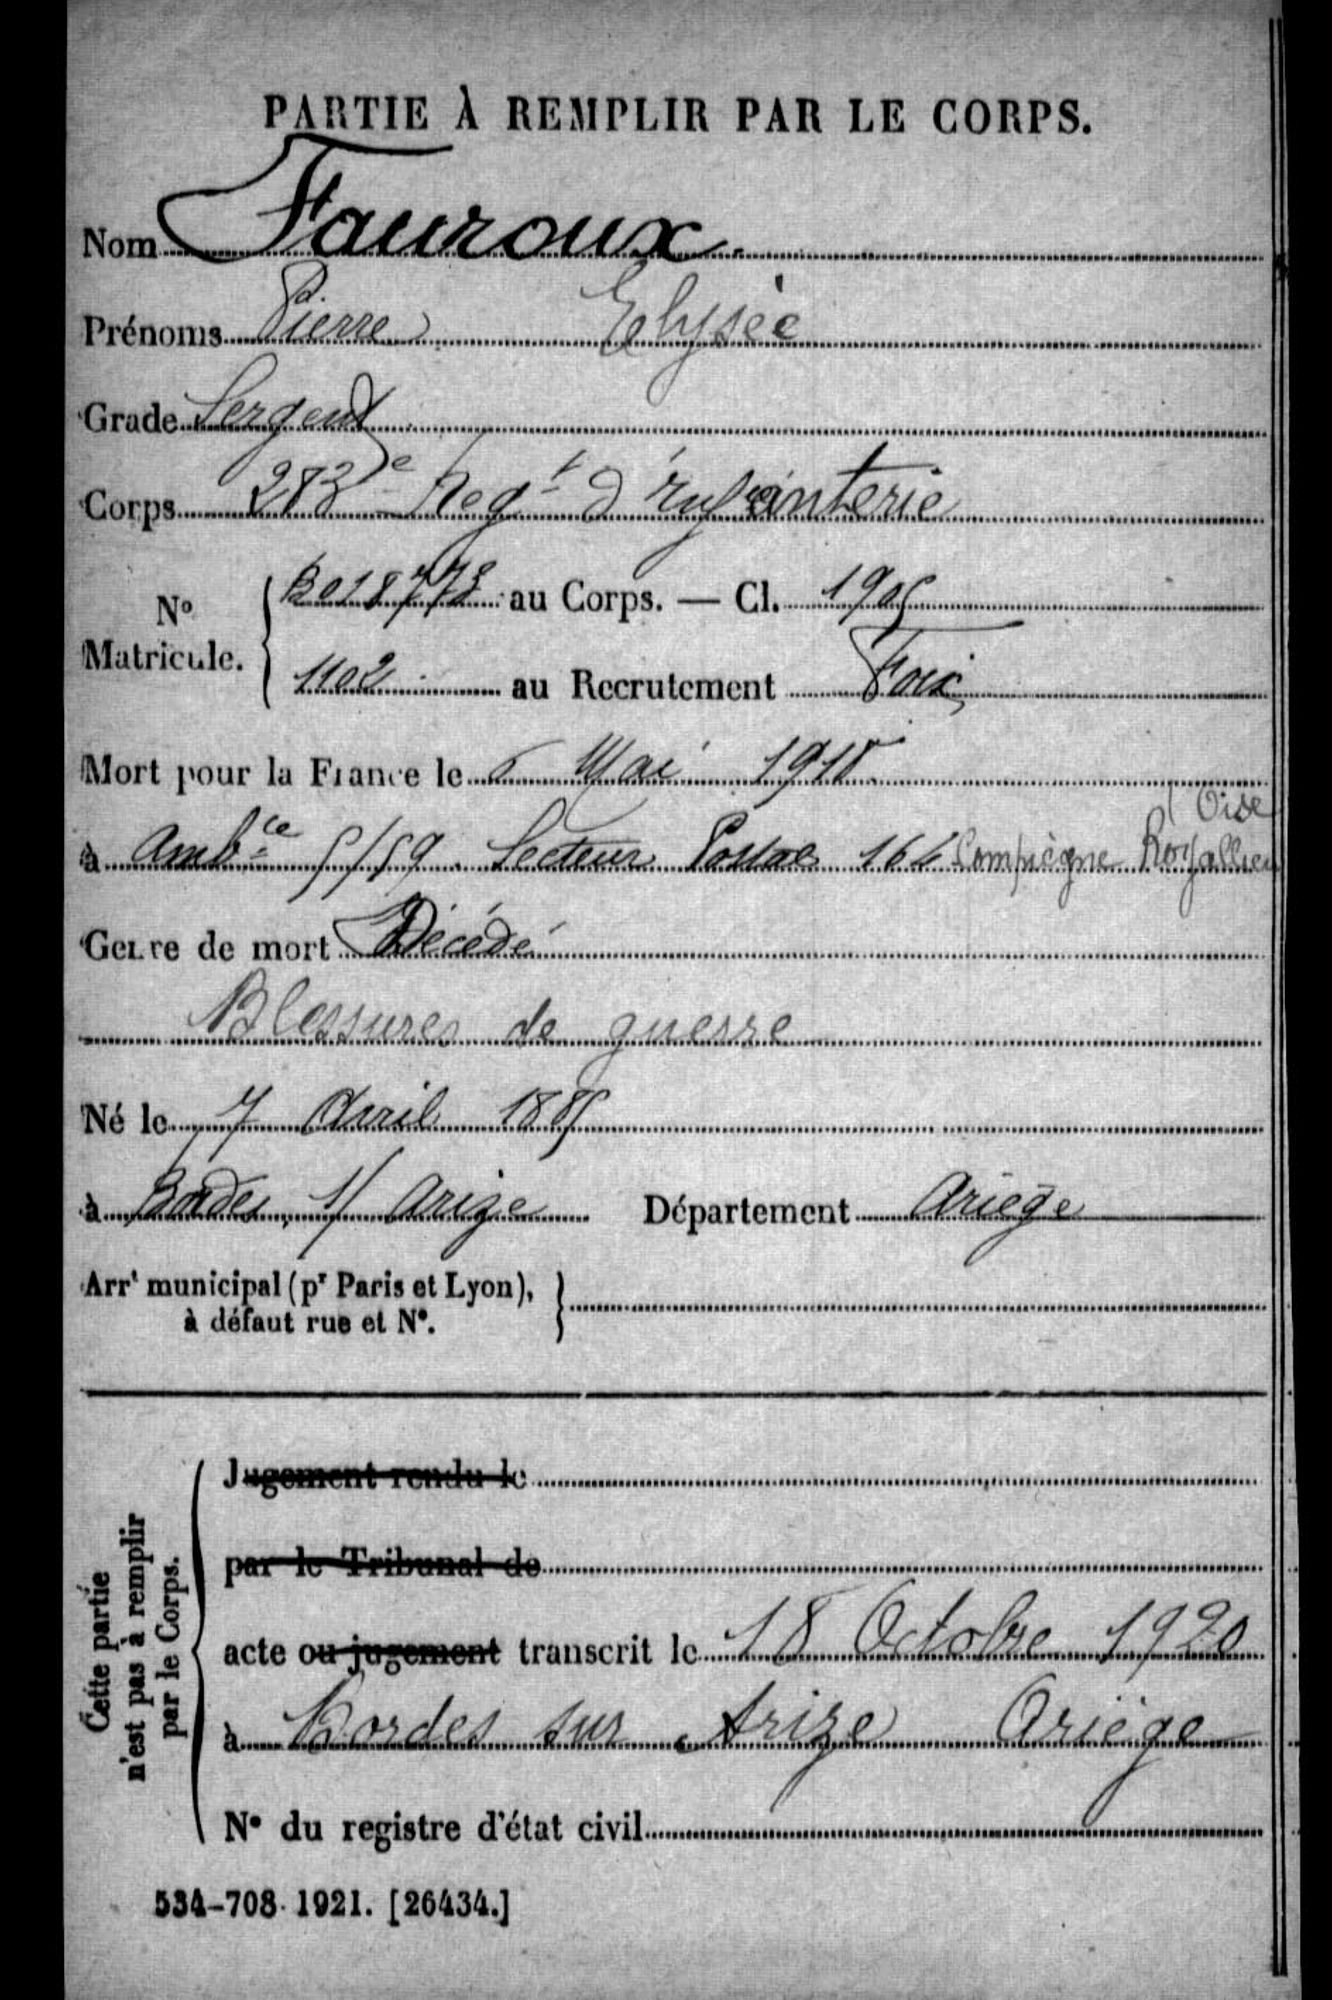 PARTIE À REMPLIR PAR LE CORPS.
Nom Fauroux.
Prénoms Pierre Elysée
Grade Sergent
Corps 283e Regt d'infanterie
No Matricule. { B018773 au Corps. — Cl. 1905
1102 au Recrutement Foix
Mort pour la France le 6 Mai 1918
(Oise
à Ambce 5/59. Secteur Postal 166 Compiègne Royallieu
Genre de mort Décédé
Blessures de guerre
Né le 7 Avril 1885
à Bordes s/ Arize Département Ariège
Arrt municipal (pr Paris et Lyon), à défaut rue et No. }
Cette partie n'est pas à remplir par le Corps.
Jugement rendu le
par le Tribunal de
acte ou jugement transcrit le 18 Octobre 1920
à Bordes sur Arize Ariège
No du registre d'état civil
534-708. 1921. [26434.]